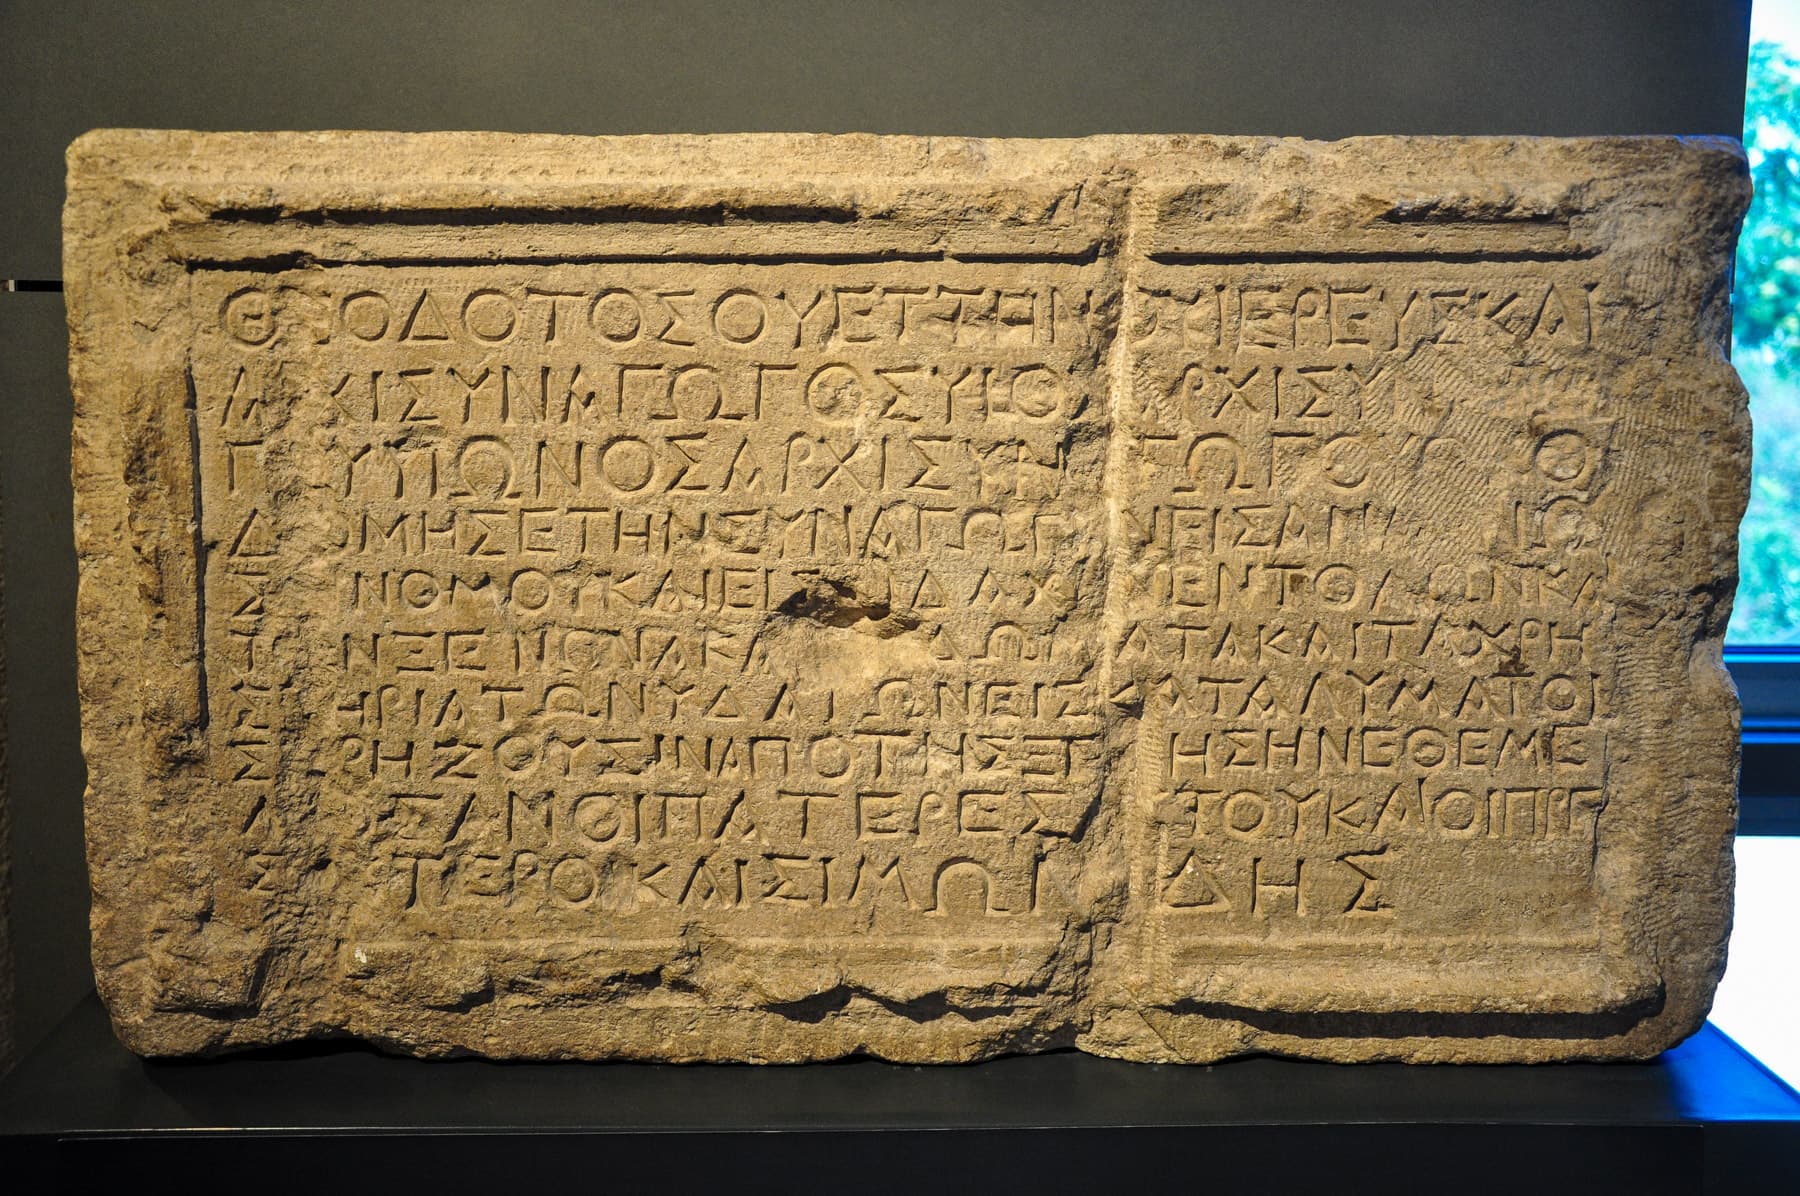 ΘΕΟΔΟΤΟΣ ΟΥΕΤΤΗΝΟΥ ΙΕΡΕΥΣ ΚΑΙ
ΑΡΧΙΣΥΝΑΓΩΓΟΣ ΥΙΟΣ ΑΡΧΙΣΥΝ
ΓΟΥ ΥΙΩΝΟΣ ΑΡΧΙΣΥΝΑΓΩΓΟΥ
ΔΟΜΗΣΕ ΤΗΝ ΣΥΝΑΓΩΓΗΝ ΕΙΣ ΑΝΑΓΝΩ
ΣΙΝ ΝΟΜΟΥ ΚΑΙ ΕΙΣ ΔΙΔΑΧΗΝ ΕΝΤΟΛΩΝ ΚΑΙ
ΤΟΝ ΞΕΝΩΝΑ ΚΑΙ ΔΩΜΑΤΑ ΚΑΙ ΤΑ ΧΡΗ
ΣΤΗΡΙΑ ΤΩΝ ΥΔΑΤΩΝ ΕΙΣ ΚΑΤΑΛΥΜΑ ΤΟΙ
Σ ΧΡΗΖΟΥΣΙΝ ΑΠΟ ΤΗΣ ΞΕΝΗΣ ΗΝ ΕΘΕΜΕ
ΛΙΩΣΑΝ ΟΙ ΠΑΤΕΡΕΣ ΑΥΤΟΥ ΚΑΙ ΟΙ ΠΡΕ
ΣΒΥΤΕΡΟΙ ΚΑΙ ΣΙΜΩΝΙΔΗΣ